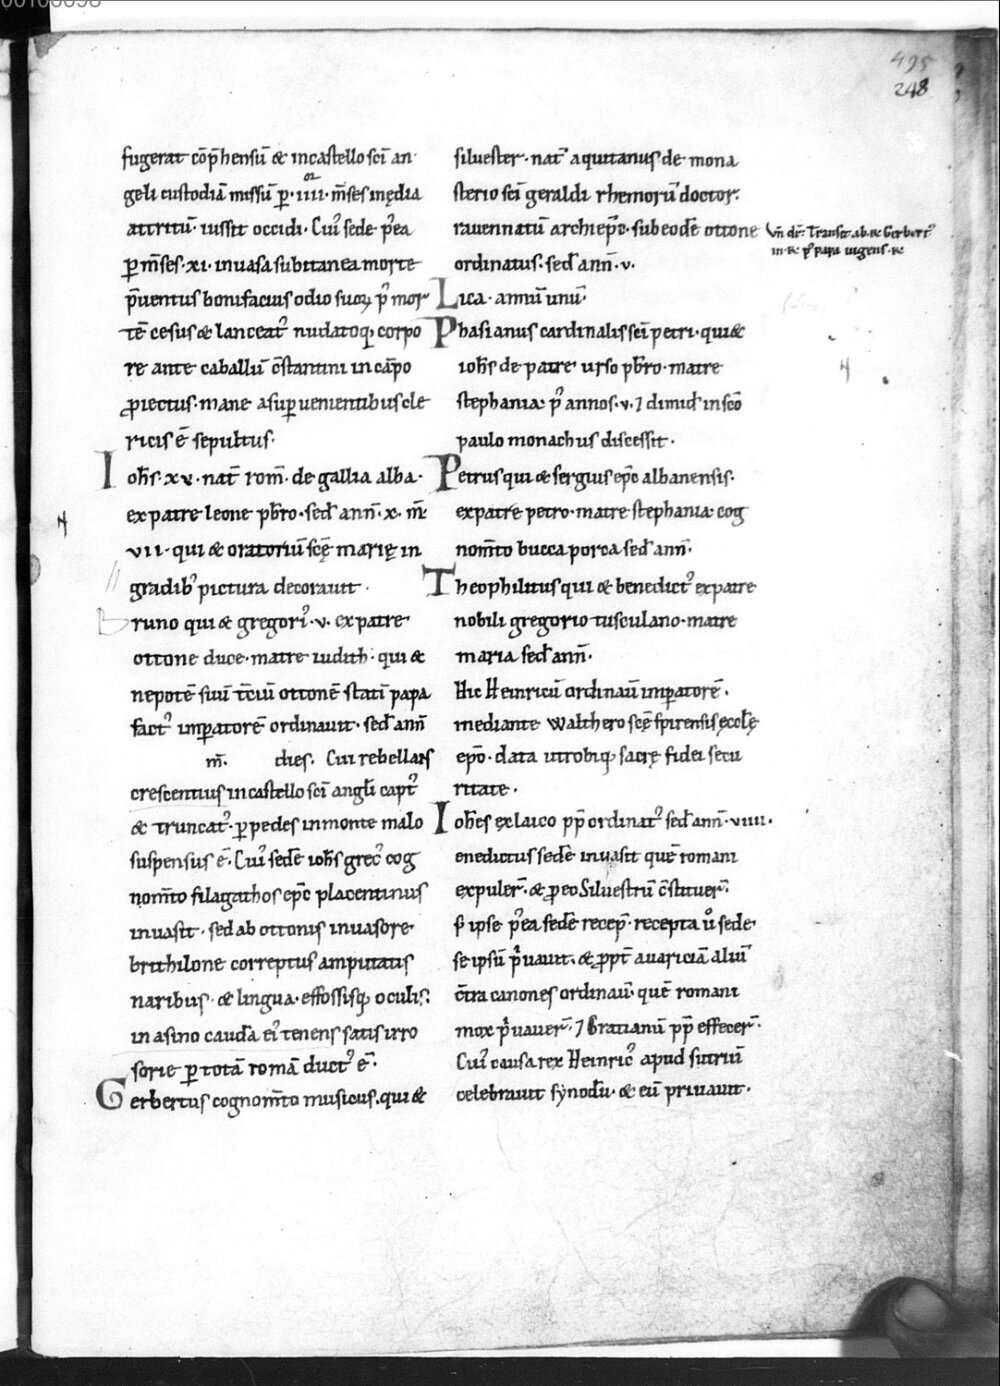 495
248
fugerat cōp̄hensū & incastello sc̄i an
geli custodiā missū p̱·iiii·m̄ses inędia
attritū· iussit occidi· Cui᷒ sede p̄ea
p̱ m̄ses·xi·inuasa subitanea morte
p̄uentus bonifacius odio suoꝝ p᷒ mor
tē cesus & lanceat᷒ nudatoq; corpo
re ante caballū c̄stantini in cāpo
ꝓiectus·mane a sup̱uenientibus cle
ricis ē sepultus·
Ioh̄s·xv·nat̄ rom̄·de gallia alba·
ex patre leone pb̄ro·sed̄ ann̄·x·m̄·
vii·qui & oratoriū sc̄ę marię in
gradib᷒ pictura decorauit·
Bruno qui & gregori᷒·v·ex patre
ottone duce·matre iudith·qui &
nepotē suū t̄ciū ottonē statī papa
fact᷒ imp̱atorē ordinauit·sed̄ ann̄
m̄· dies· Cui rebellans
crescentius in castello sc̄i angl̄i capt᷒
& truncat᷒·p̱ pedes in monte malo
suspensus ē·Cui᷒ sedē ioh̄s grec᷒ cog
nom̄to filagathos ep̄c placentinus
inuasit·sed ab ottonis inuasore
brithilone correptus amputatis
naribus·& lingua·effossisq; oculis·
in asino caudā ei᷒ tenens satis irro
sorie p̱ totā romā duct᷒ ē·
Gerbertus cognom̄to musicus·qui &
siluester·nat᷒ aquitanus de mona
sterio sc̄i geraldi rhemorū doctor·
rauennatū archiep̄c·sub eodē ottone
ordinatus·sed̄ ann̄·v·
Vn̄ dr̄: Transit ab·R· Gerbert᷒
in·R· p᷒ papa uigens·R·
Lica·annū unū·
Phasianus cardinalis sc̄i petri·qui &
ioh̄s de patre urso pb̄ro·matre
stephania: p᷒ annos·v·⁊ dimid̄ in sc̄o
paulo monachus discessit·
Petrus qui & sergius ep̄c albanensis·
ex patre petro·matre stephania: cog
nom̄to bucca porca sed̄ ann̄·
Theophilitus qui & benedict᷒ ex patre
nobili gregorio tusculano·matre
maria sed̄ ann̄·
Hic Heinricū ordinaū imp̱atorē·
mediante walthero sc̄ę spirensis ęccl̄ę
ep̄o·data utrobiq; sacrę fidei secu
ritate·
Ioh̄es ex laico pp̄ ordinat᷒ sed̄ ann̄·viiii·
enedictus sedē inuasit quē romani
expuler̄·& ꝓ eo Siluestrū c̄stituer̄·
s; ipse p̄ea sedē recep̄·recepta u̾ sede
se ipsū p̄uauit·& ꝓpt̄ auariciā aliū
c̄tra canones ordinaū·quē romani
mox p̄uauer̄·⁊ Gratianū pp̄ effecer̄·
Cui᷒ causa rex Heinric᷒ apud sutriū
celebrauit synodū·& eū priuauit·